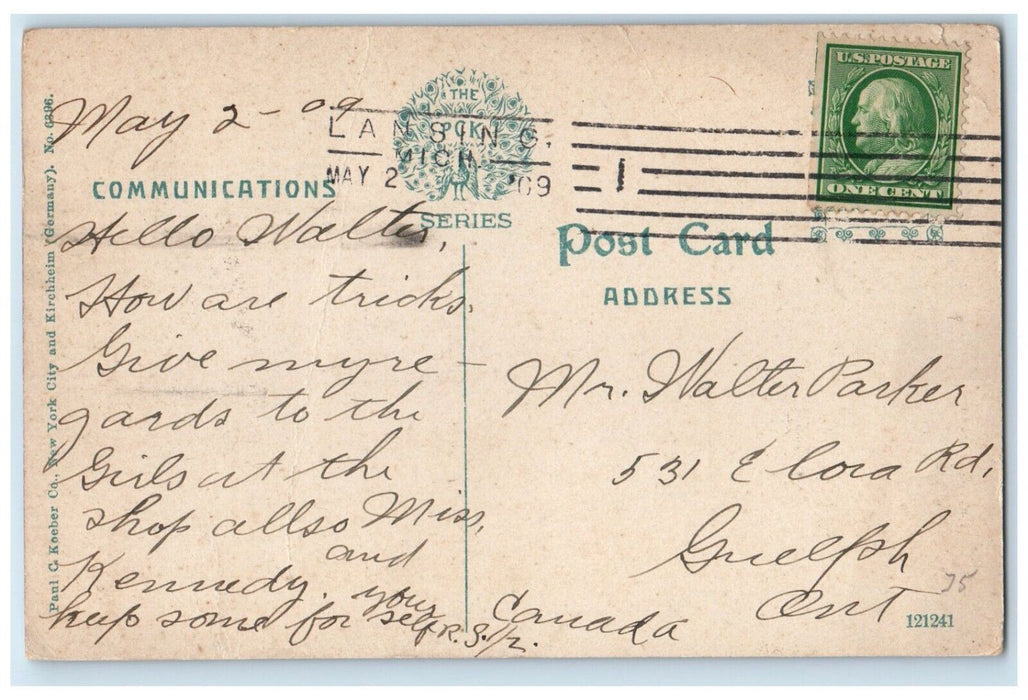 May 2-09
THE
PCK
SERIES
LANSING.
MICH.
MAY 2 '09
1
U.S.POSTAGE
ONE CENT
COMMUNICATIONS
Post Card
ADDRESS
Hello Walter,
How are tricks.
Give my re-
gards to the
Girls at the
shop allso Miss,
Kennedy. and
keep some for your self
Mr. Walter Parker
531 Elora Rd,
Guelph
Ont
Canada
75
121241
Paul C. Koeber Co., New York City and Kirchheim (Germany). No. 6396.